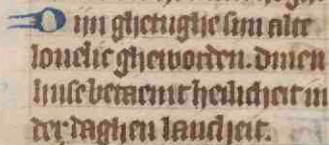 Dijn ghetughe sijn alte
louelic gheworden. dinen
huse betaemt heilicheit in
der daghen lancheit.